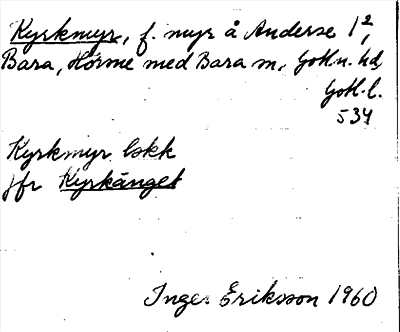 Kyrkmyr, f. myr å Anderse 1²,
Bara, Hörsne med Bara sn, Gotl. n. hd
Gotl. l.
534
Kyrkmyr lskk
jfr Kyrkänget
Inger Eriksson 1960